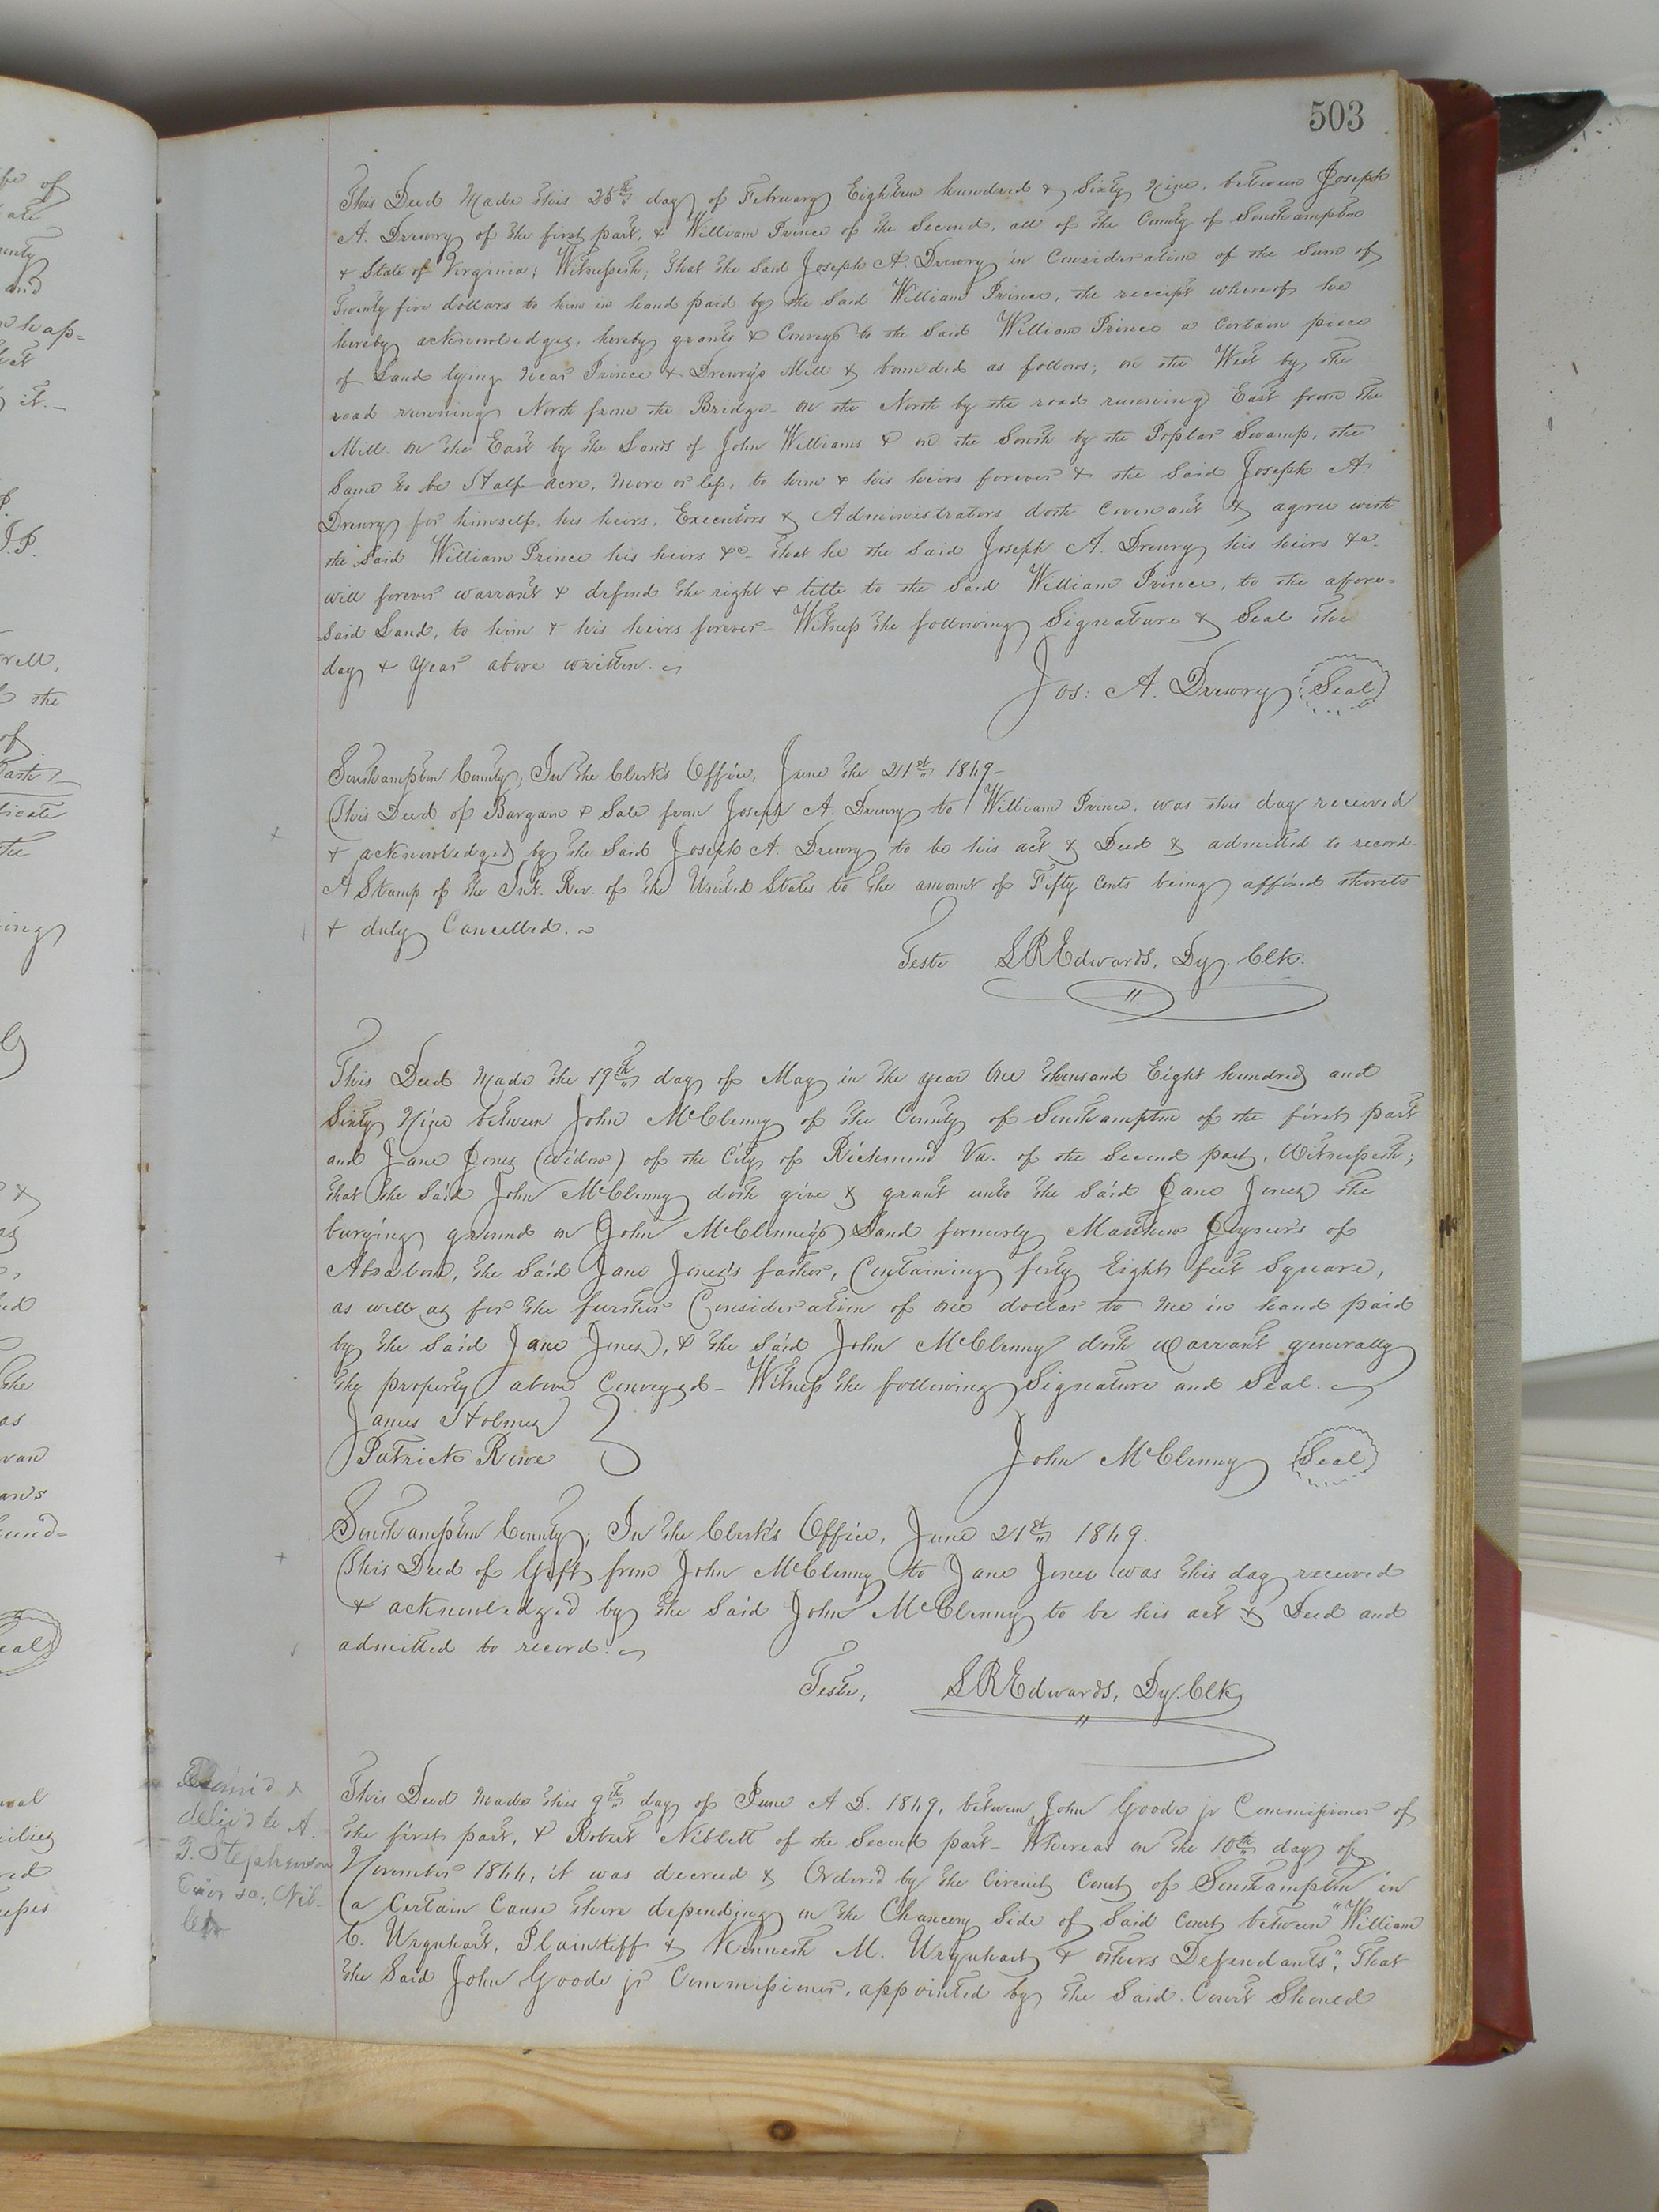 503
This Deed Made this 25th day of February Eighteen hundred & Sixty Nine, between Joseph
A. Drewry of the first part, & William Prince of the Second, all of the County of Southampton
& State of Virginia; Witnesseth, that the said Joseph A. Drewry in Consideration of the Sum of
Twenty five dollars to him in hand paid by the Said William Prince, the receipt whereof he
hereby acknowledges, hereby grants & Conveys to the Said William Prince a Certain piece
of Land lying Near Prince & Drewry's Mill & bounded as follows; on the West by the
road running North from the Bridge - on the North by the road running East from the
Mill. on the East by the Lands of John Williams & on the South by the Poplar Swamp, the
Same to be Half acre, more or less, to him & his heirs forever & the Said Joseph A.
Drewry for himself, his heirs, Executors & Administrators doth Covenant & agree with
the Said William Prince his heirs &c- that he the Said Joseph A. Drewry his heirs &c-
will forever warrant & defend the right & title to the Said William Prince, to the afore-
Said Land, to him & his heirs forever - Witness the following Signature & Seal the
day & Year above written.
Jos: A. Drewry Seal
Southampton County; In the Clerk's Office, June the 21st 1869-
This Deed of Bargain & Sale from Joseph A. Drewry to William Prince, was this day received
& acknowledged by the Said Joseph A. Drewry to be his act & Deed & admitted to record.
A Stamp of the Int. Rev. of the United States to the amount of Fifty Cents being affixed thereto
& duly Cancelled.
Teste L R Edwards, Dy. Clk.
This Deed Made the 19th day of May in the year One thousand Eight hundred and
Sixty Nine between John McClenny of the County of Southampton of the first part
and Jane Jones (Widow) of the City of Richmond Va. of the Second part, Witnesseth;
that the Said John McClenny doth give & grant unto the Said Jane Jones the
burying ground on John McClenny's Land formerly Matthew Joyner's of
Absalom, the Said Jane Jones's father, Containing forty Eight feet Square,
as well as for the further Consideration of One dollar to me in hand paid
by the Said Jane Jones, & the Said John McClenny doth Warrant generally
the property above Conveyed - Witness the following Signature and Seal.
James Holmes
Patrick Rowe
John McClenny Seal
Southampton County; In the Clerk's Office, June 21st 1869.
This Deed of Gift from John McClenny to Jane Jones was this day received
& acknowledged by the Said John McClenny to be his act & Deed and
admitted to record.
Teste, L R Edwards, Dy. Clk
deliv'd to A.
Stephenson
This Deed Made this 9th day of June A. D. 1869, between John Goode jr Commissioner of
the first part, & Robert Niblett of the Second part - Whereas on the 10th day of
November 1866, it was decreed & Ordered by the Circuit Court of Southampton in
a Certain Cause there depending on the Chancery Side of Said Court between "William
C. Urquhart, Plaintiff & Kenneth M. Urquhart & others Defendants"; that
the Said John Goode jr Commissioner, appointed by the Said Court Should